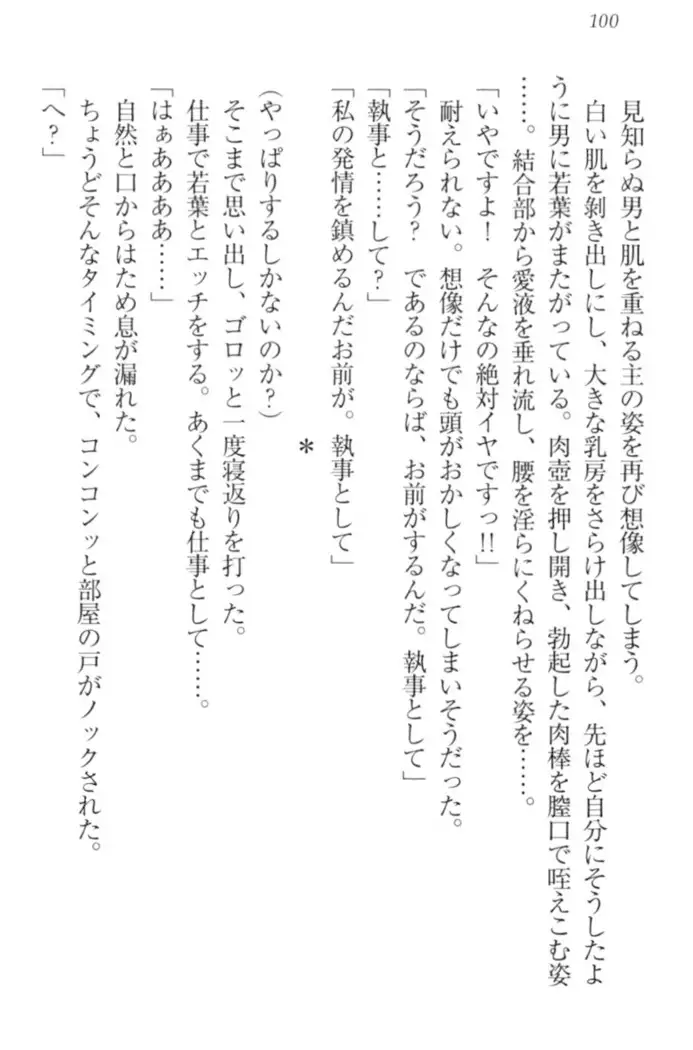 100
見知らぬ男と肌を重ねる主の姿を再び想像してしまう。
白い肌を剝き出しにし、大きな乳房をさらけ出しながら、先ほど自分にそうしたよ
うに男に若葉がまたがっている。肉壺を押し開き、勃起した肉棒を膣口で咥えこむ姿
……。結合部から愛液を垂れ流し、腰を淫らにくねらせる姿を……。
「いやですよ！　そんなの絶対イヤですっ!!」
耐えられない。想像だけでも頭がおかしくなってしまいそうだった。
「そうだろう？　であるのならば、お前がするんだ。執事として」
「執事と……して？」
「私の発情を鎮めるんだお前が。執事として」
＊
(やっぱりするしかないのか？)
そこまで思い出し、ゴロッと一度寝返りを打った。
仕事で若葉とエッチをする。あくまでも仕事として……。
「はぁああああ……」
自然と口からはため息が漏れた。
ちょうどそんなタイミングで、コンコンッと部屋の戸がノックされた。
「へ？」